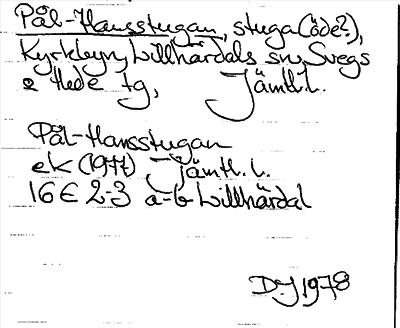 Pål-Hansstugan, stuga (öde?),
Kyrkbyn, Lillhärdals sn, Svegs
o Hede tg, Jämtl.l.
Pål-Hansstugan
ek (1977) Jämtl. l.
16E 2-3 a-b Lillhärdal
DJ 1978